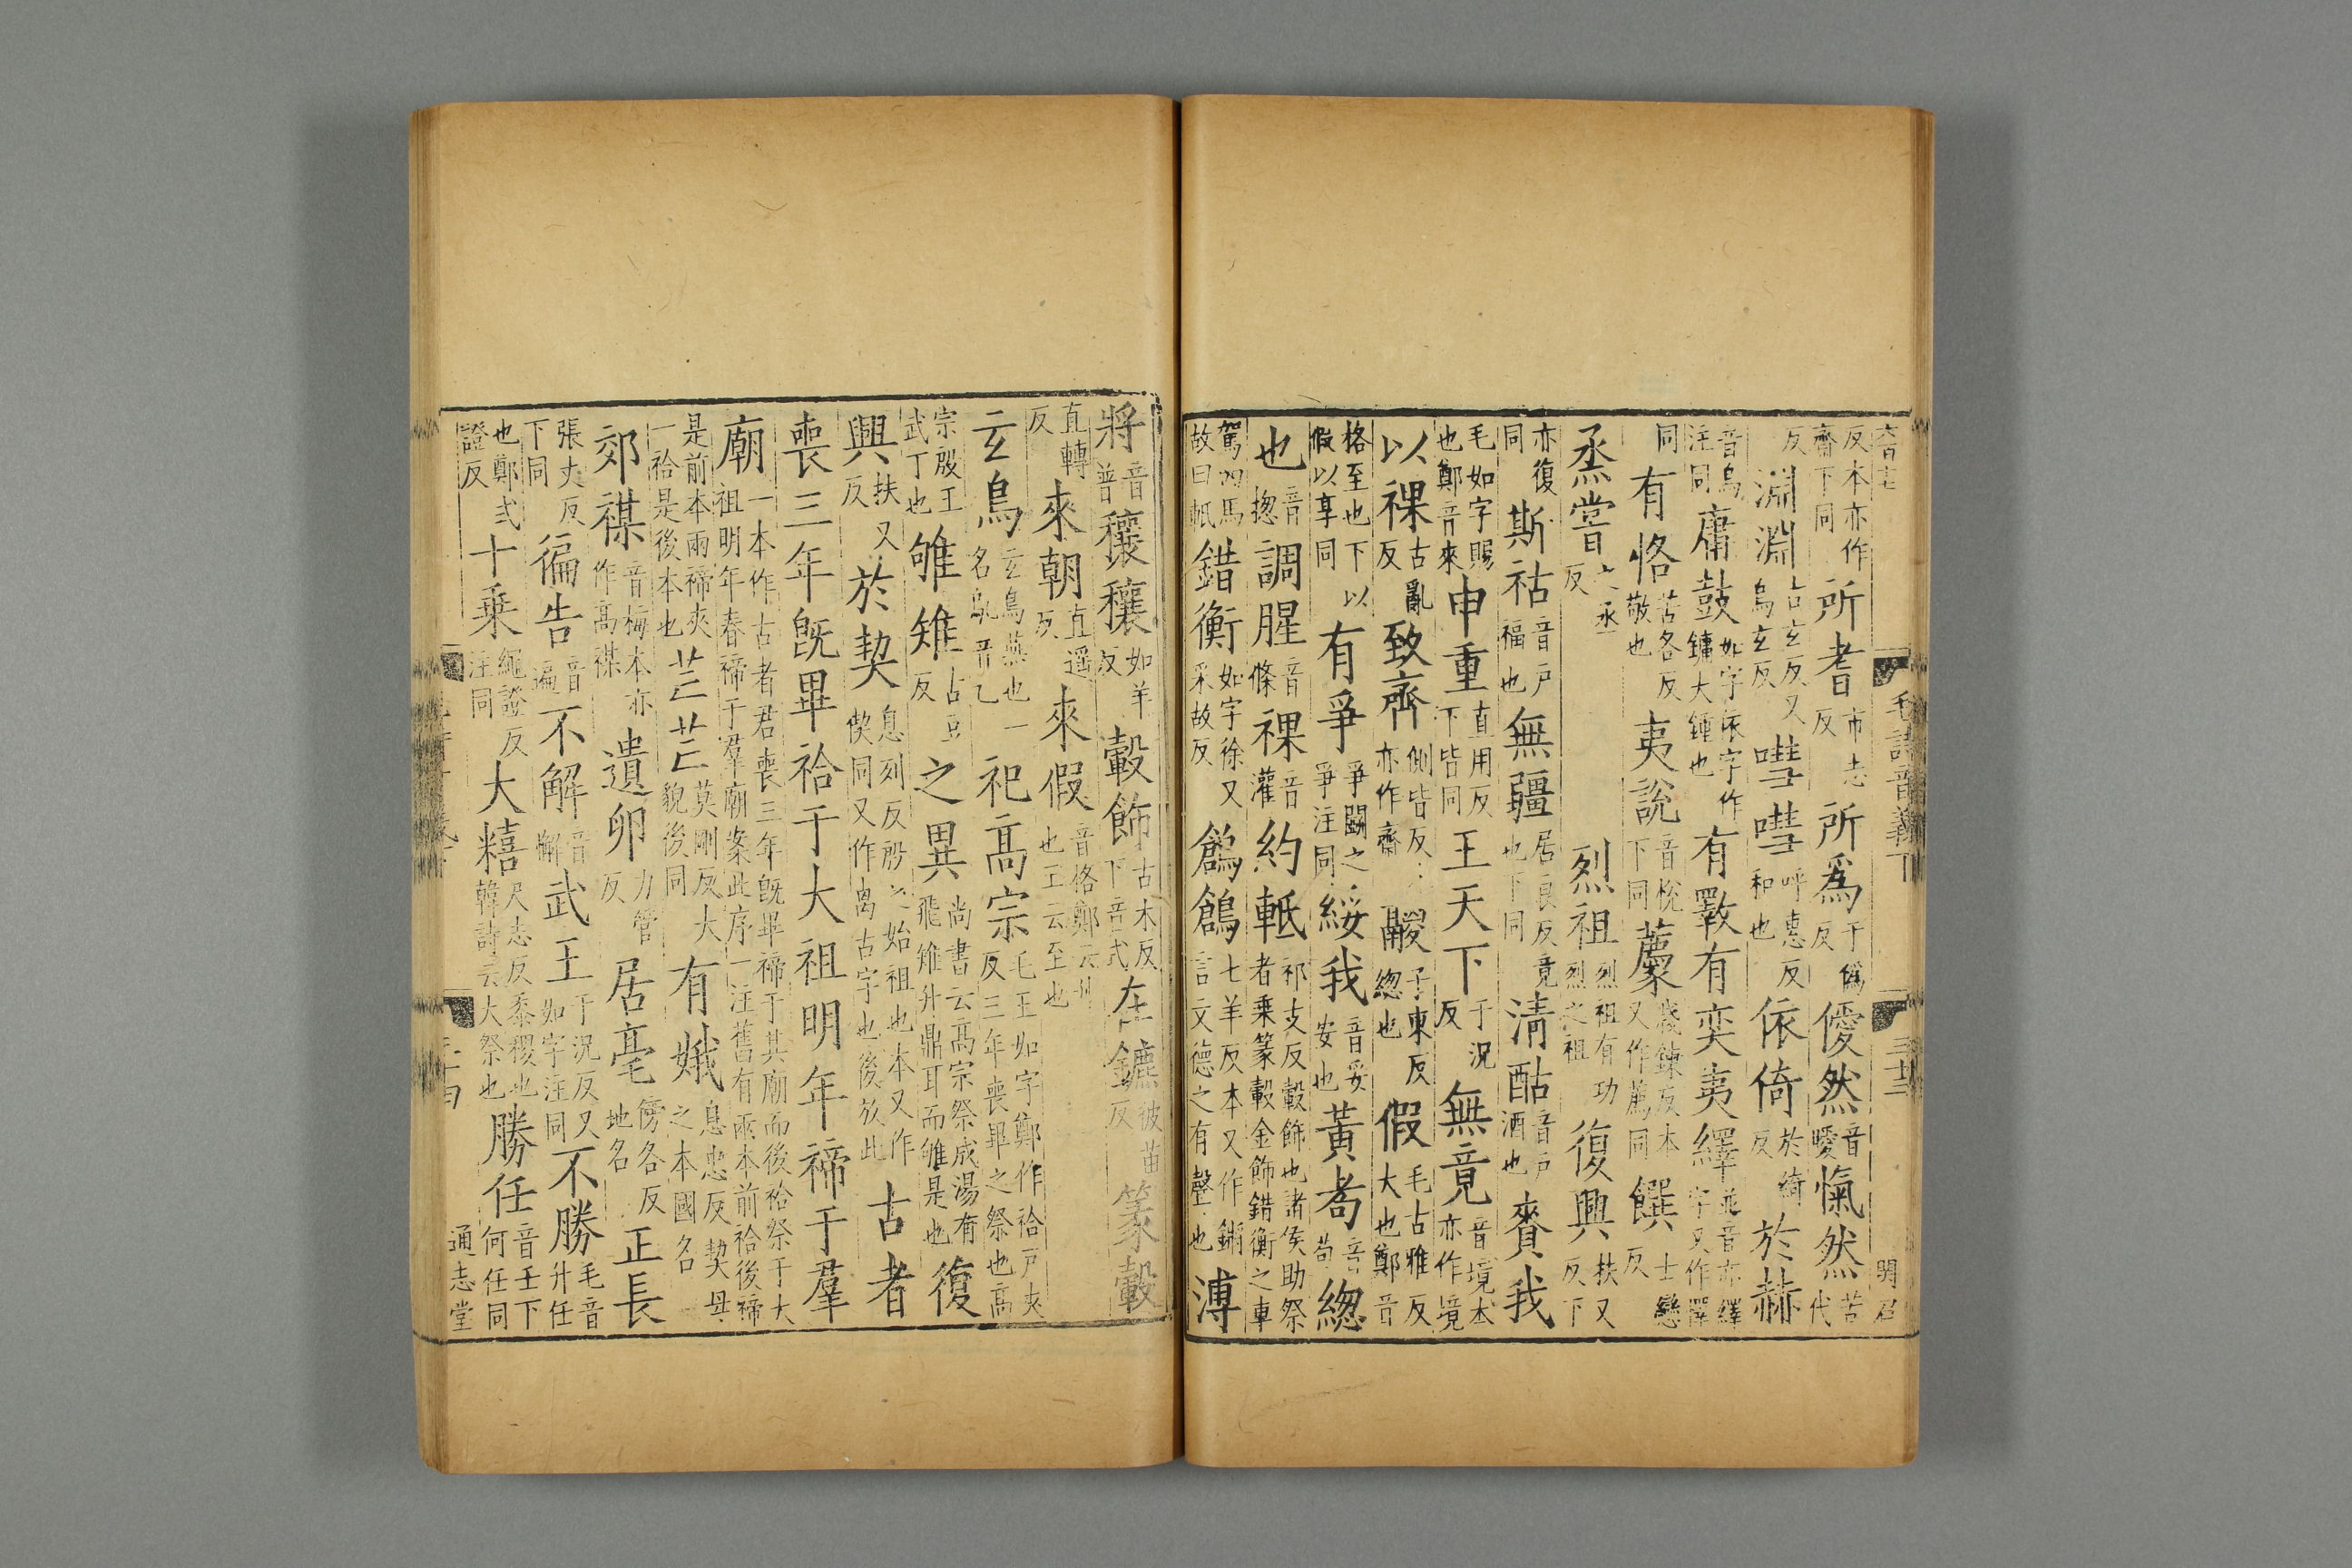 毛詩音義下 三十三
反本亦作齋下同所耆市志反所爲于僞反僾然音曖愾然苦代
反淵淵古玄反又烏玄反嘒嘒呼惠反和也依倚於綺反於赫
音烏注同庸鼓如字依字作鏞大鍾也有斁有奕夷繹並音亦繹字又作懌
同有恪苦各反敬也夷說音悅下同薦牋練反本又作薦同饌士戀反
烝嘗之丞反烈祖烈祖有功烈之祖復興扶又反下
亦復同斯祜音户福也無疆居良反竟也下同清酤音户酒也賚我
毛如字賜也鄭音來申重直用反下皆同王天下于況反無竟音境本亦作境
以祼古亂反致齊側皆反亦作齋鬷子東反緫也假毛古雅反大也鄭音
格至也下以假以享同有爭爭鬬之爭注同綏我音妥安也黃耇音苟緫
也音揔調腥音條祼音灌約軧祁支反轂飾也諸侯助祭者乘篆轂金飾錯衡之車
駕四馬故曰軧錯衡如字徐又采故反鶬鶬七羊反本又作鏘言文德之有聲也溥
將音普穰穰如羊反轂飾古木反下音式在鑣彼苗反篆轂
直轉反來朝直遥反來假音格鄭云升也王云至也
玄鳥玄鳥燕也一名鳦音乙祀高宗毛王如字鄭作祫户夾反三年喪畢之祭也高
宗殷王武丁也雊雉古豆反之異尚書云高宗祭成湯有飛雉升鼎耳而雊是也復
興扶又反於契息列反殷之始祖也本又作偰同又作卨古字也後放此古者
喪三年旣畢祫于大祖明年禘于羣
廟一本作古者君喪三年旣畢禘于其廟而後祫祭于大祖明年春禘于羣廟案此序一注舊有兩本前祫後禘
是前本兩禘夾一祫是後本也芒芒莫剛反大貌後同有娀息忠反契母之本國名
郊禖音梅本亦作高禖遺卵力管反居亳傍各反地名正長
張丈反下同徧告音遍不解音懈武王于況反又如字注同不勝毛音升任
也鄭式證反十乗繩證反注同大糦尺志反黍稷也韓詩云大祭也勝任音壬下何任同
通志堂